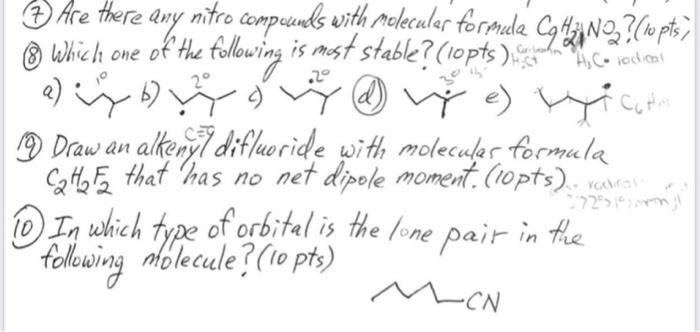 ⑦ Are there any nitro compounds with molecular formula C9H21NO2? (10 pts)
⑧ Which one of the following is most stable? (10 pts)
a) 1° b) 2° c) 2° d) 3° e)
⑨ Draw an alkenyl difluoride with molecular formula
C=C
C2H2F2 that has no net dipole moment. (10 pts)
⑩ In which type of orbital is the lone pair in the
following molecule? (10 pts)
CN